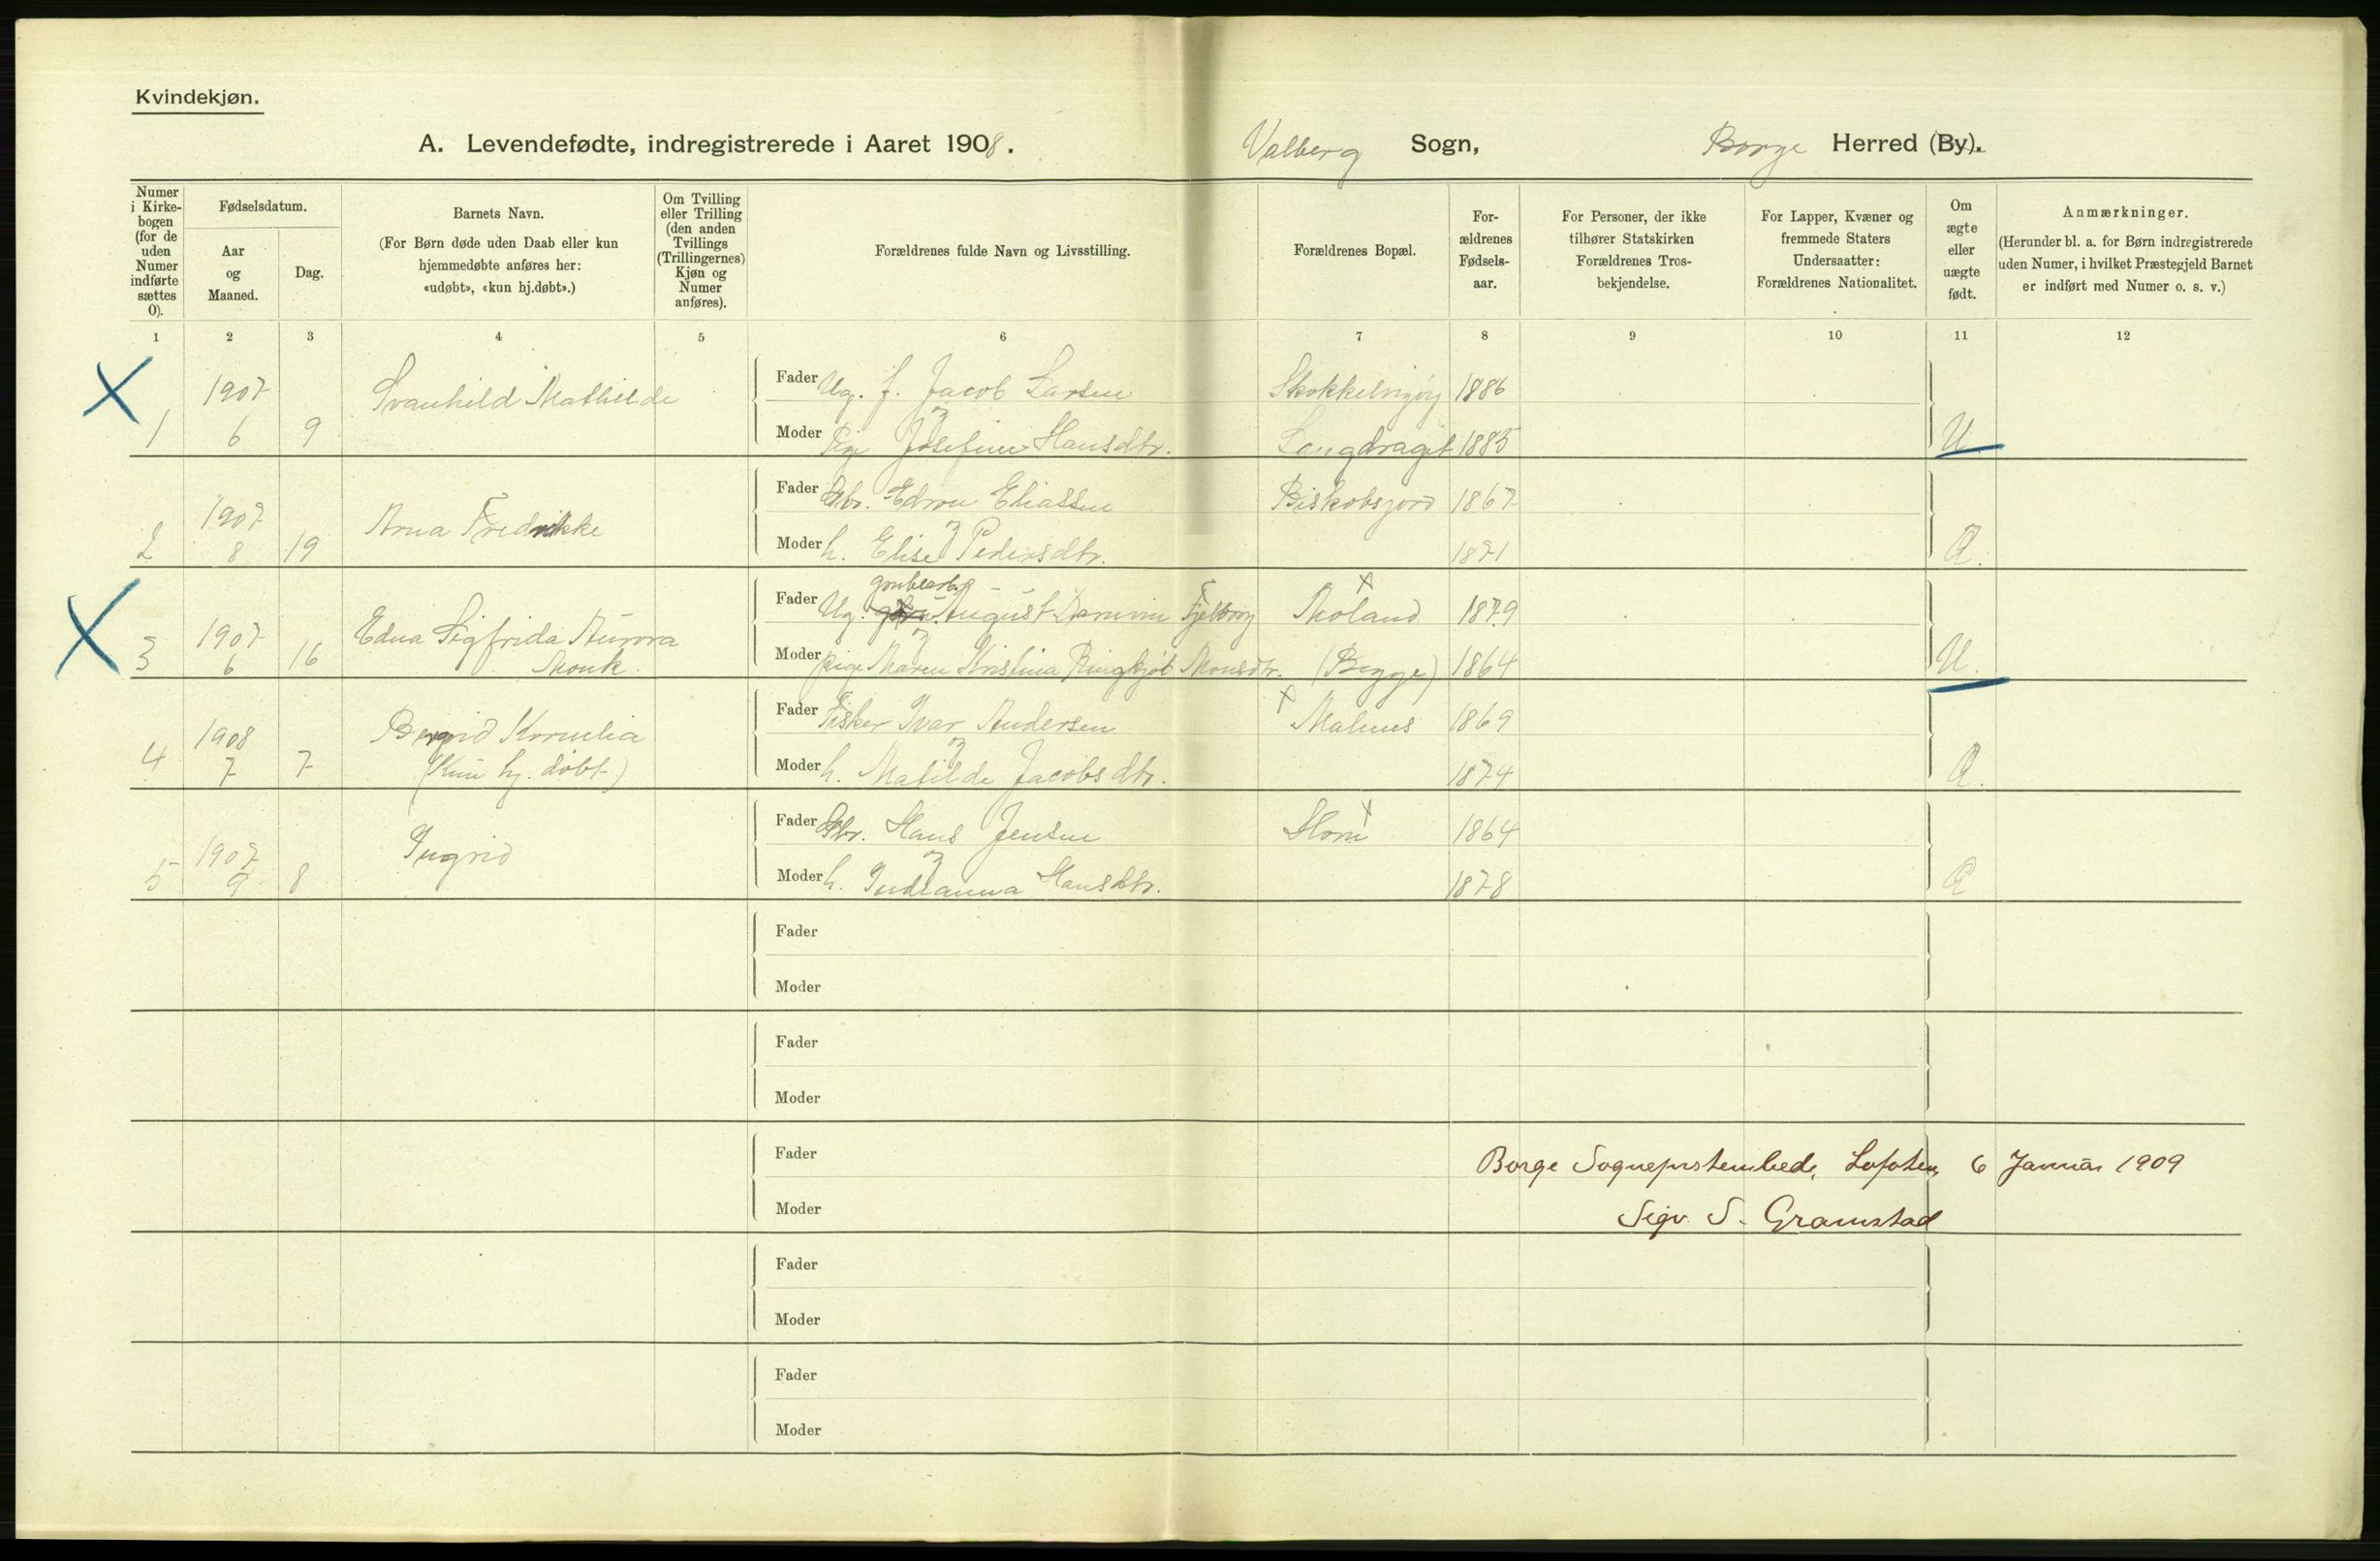 Kvindekjøn.
A. Levendefødte, indregistrerede i Aaret 1908.
Valberg Sogn, Borge Herred (By).
Numer i Kirkebogen (for de uden Numer indførte sættes 0).
Fødselsdatum.
Aar og Maaned.
Dag.
Barnets Navn.
(For Børn døde uden Daab eller kun hjemmedøbte anføres her: «udøbt», «kun hj.døbt».)
Om Tvilling eller Trilling (den anden Tvillings (Trillingernes) Kjøn og Numer anføres).
Forældrenes fulde Navn og Livsstilling.
Forældrenes Bopæl.
Forældrenes Fødselsaar.
For Personer, der ikke tilhører Statskirken Forældrenes Trosbekjendelse.
For Lapper, Kvæner og fremmede Staters Undersaatter: Forældrenes Nationalitet.
Om ægte eller uægte født.
Anmærkninger.
(Herunder bl. a. for Børn indregistrerede uden Numer, i hvilket Præstegjeld Barnet er indført med Numer o. s. v.)
1 2 3 4 5 6 7 8 9 10 11 12
1 1907 6 9 Svanhild Mathilde
Fader Ug. f. Jacob Larsen 1886
og
Moder Pige Josefine Hansdtr. Langdraget 1885 U
2 1907 8 19 Arna Fredrikke
Fader Gbr. Edvin Eliassen Biskobsjord 1867
og
Moder h. Elise Pedersdtr. 1871 Æ.
3 1907 6 16 Edna Sigfrida Aurora Monk.
grubearb.
Fader Ug. August Fjellborg Moland 1879
og
Moder pige Maren Kristina Ringkjøb Monsdtr. (Begge) 1864 U.
4 1908 7 7 Bergrid Kornelia (Kun hj. døbt)
Fader Fisker Ivar Andersen Malnes 1869
og
Moder h. Matilde Jacobsdtr. 1874 Æ.
5 1907 9 8 Ingrid
Fader Gbr. Hans Jensen Horn 1864
og
Moder h. Indianna Hansdtr. 1878 Æ
Fader
Moder
Fader
Moder
Fader Borge Sogneprstembede, Lofoten, 6 Januar 1909
Moder Sigv. S. Gramstad
Fader
Moder
Fader
Moder